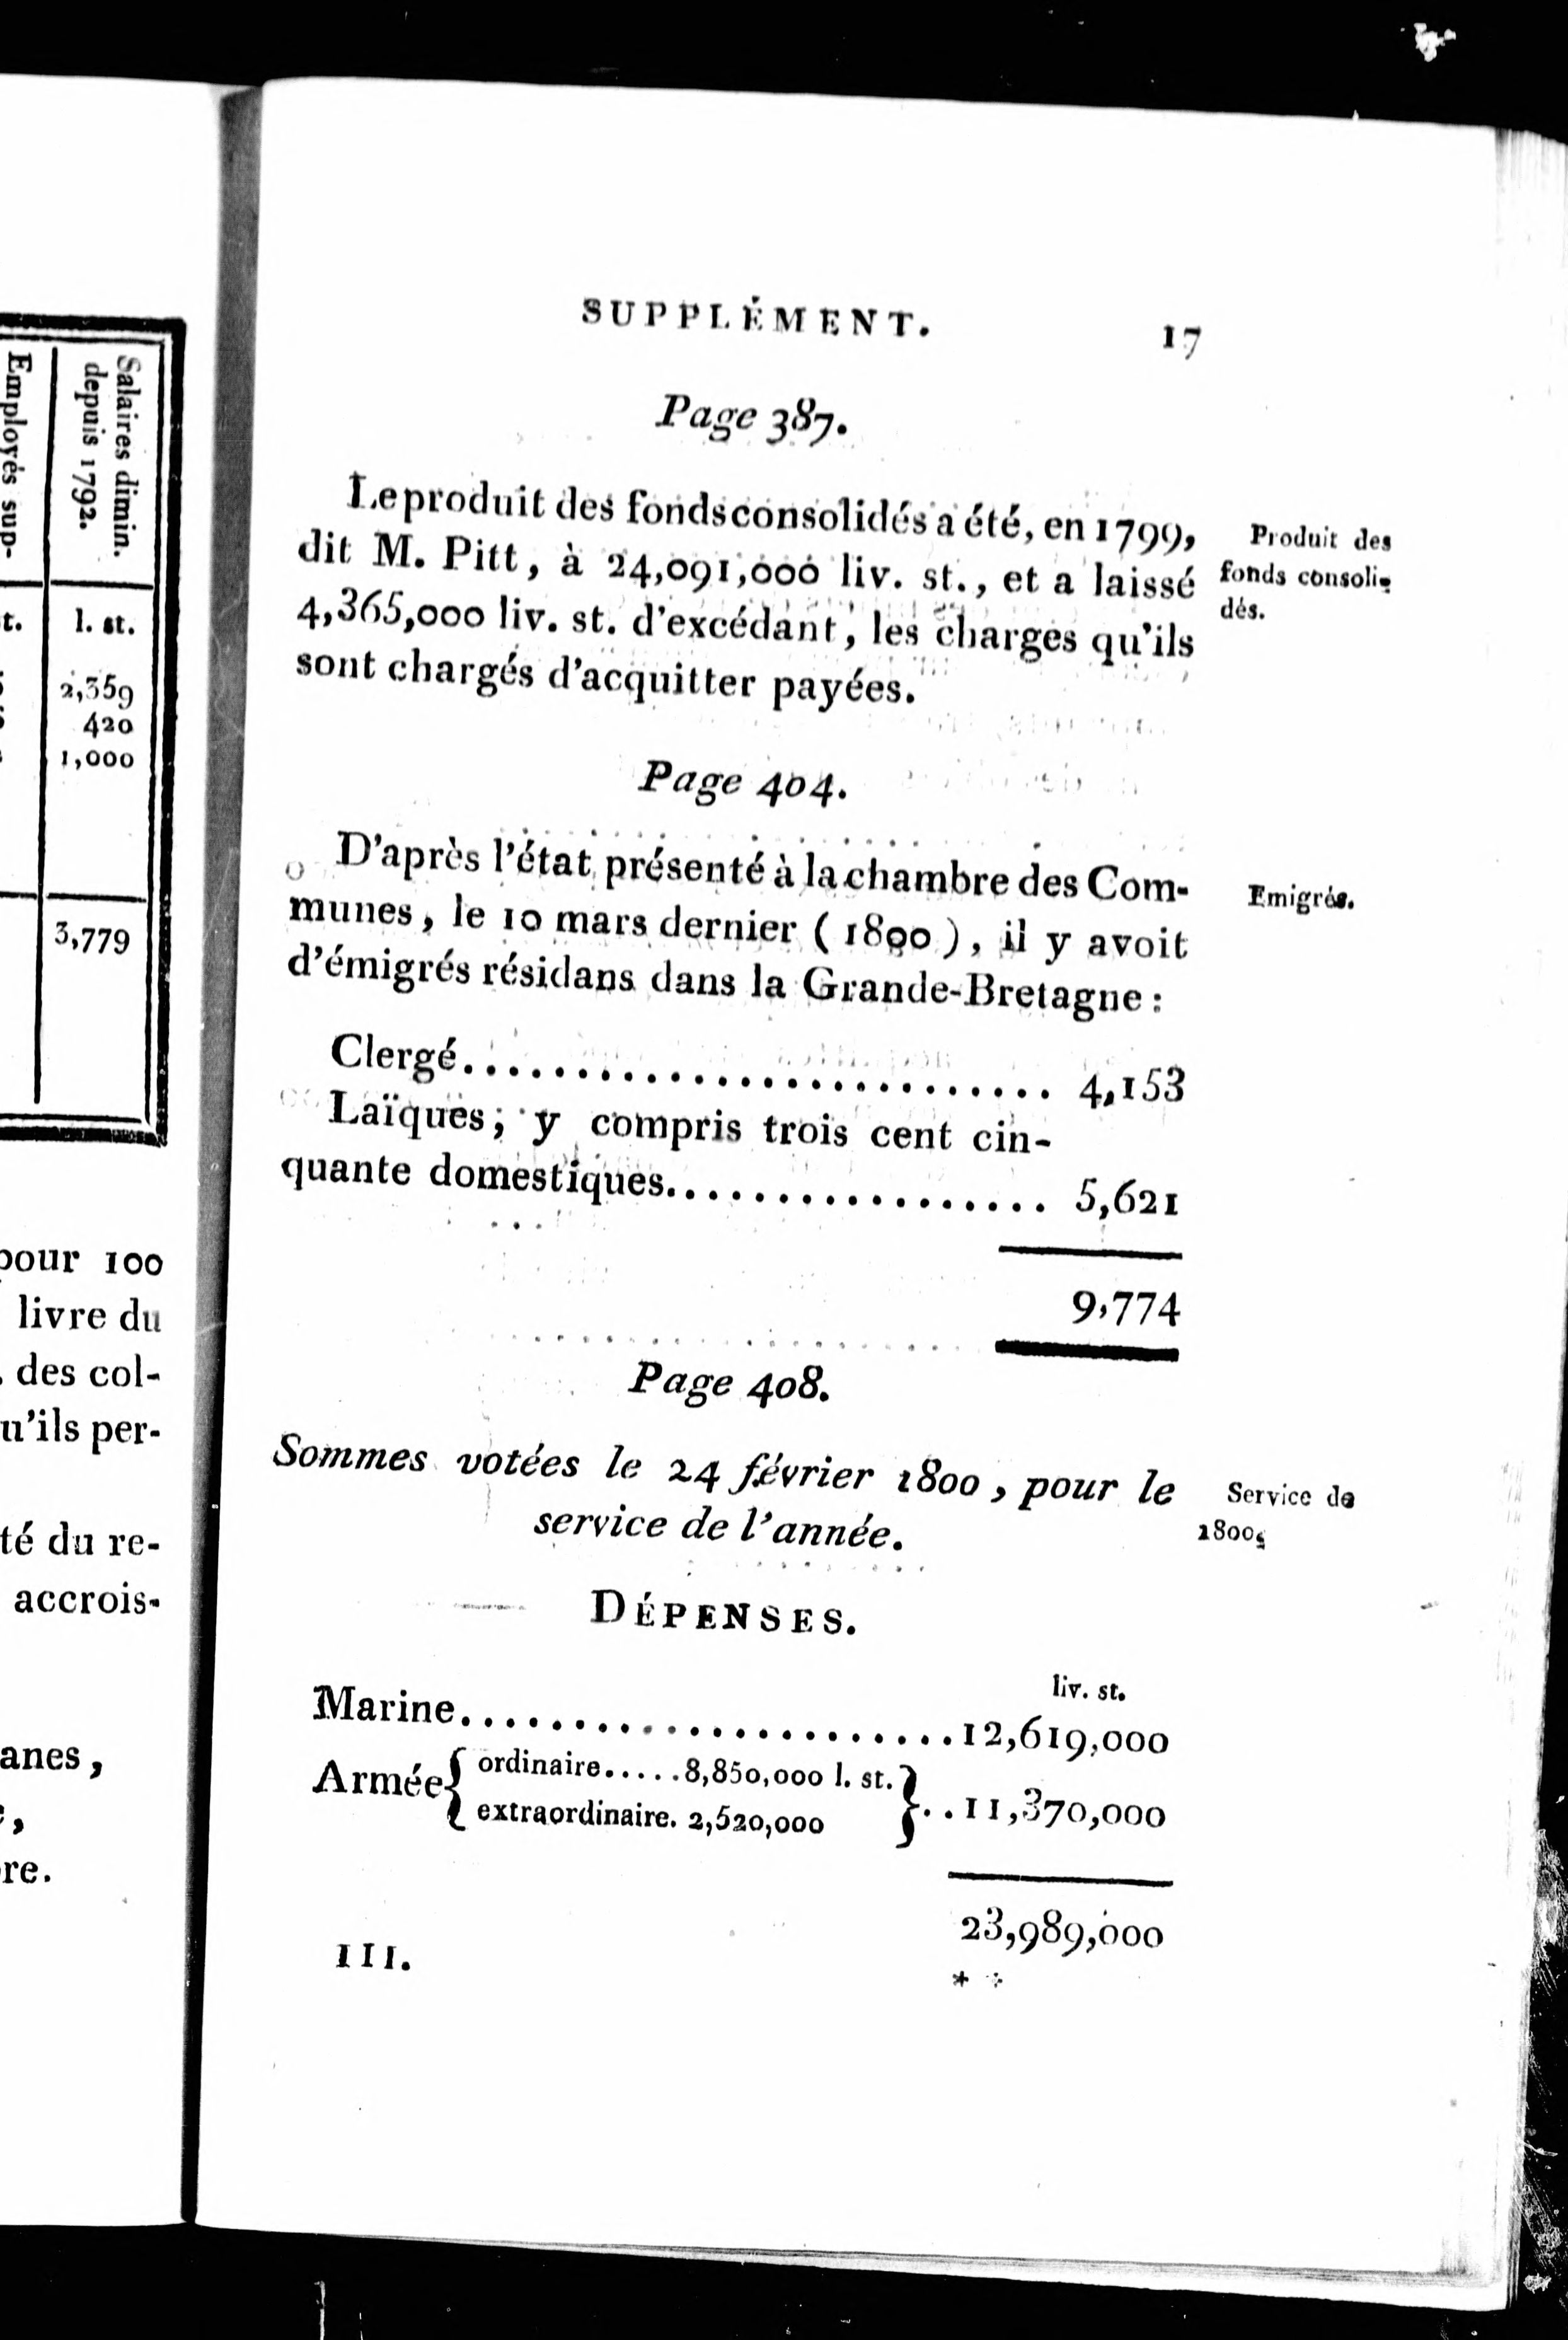 Employés sup-
Salaires dimin.
depuis 1792.
t.
l. st.
2,359
420
1,000
3,779
pour 100
livre du
des col-
u'ils per-
té du re-
accrois-
anes,
re.
SUPPLÉMENT.
17
Page 387.
Le produit des fonds consolidés a été, en 1799,
dit M. Pitt, à 24,091,000 liv. st., et a laissé
4,365,000 liv. st. d'excédant, les charges qu'ils
sont chargés d'acquitter payées.
Produit des
fonds consoli-
dés.
Page 404.
D'après l'état présenté à la chambre des Com-
munes, le 10 mars dernier (1800), il y avoit
d'émigrés résidans dans la Grande-Bretagne :
Emigrés.
Clergé........................... 4,153
Laïques; y compris trois cent cin-
quante domestiques................. 5,621
9,774
Page 408.
Sommes votées le 24 février 1800, pour le
service de l'année.
Service de
1800.
DÉPENSES.
liv. st.
Marine......................12,619,000
Armée { ordinaire.....8,850,000 l. st.
extraordinaire. 2,520,000 }..11,370,000
23,989,000
III.
* *